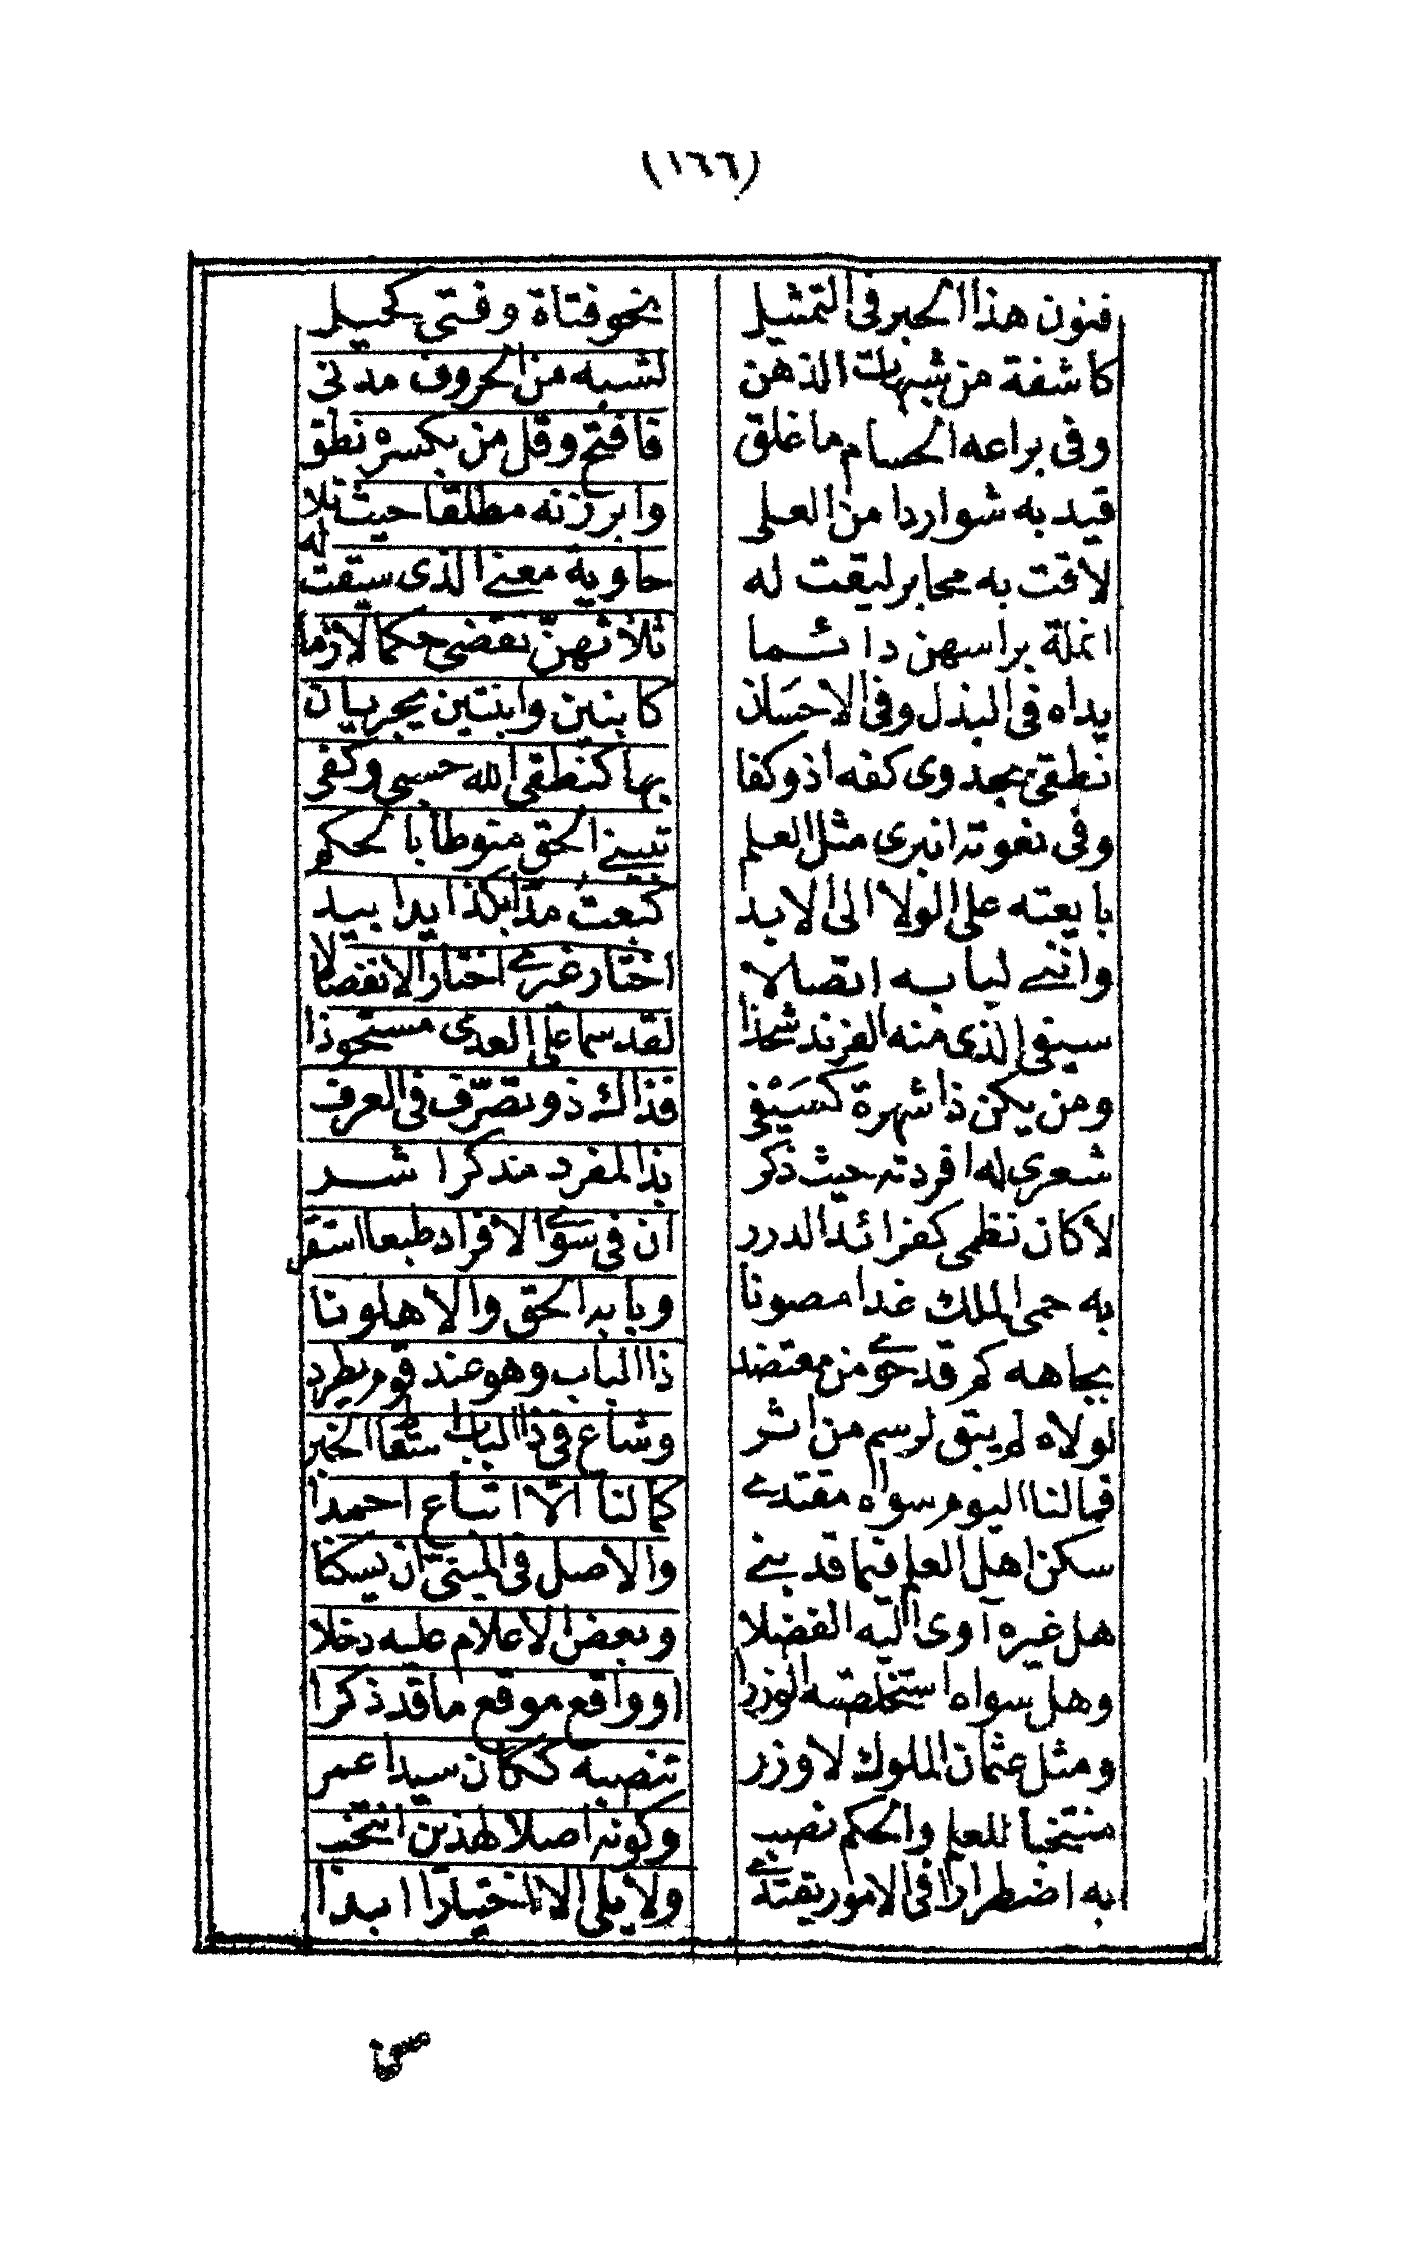 (١٦٦)
فنون هذا الحبر فى التمثيل
نحو فتاة وفتى كحيل
كاشفة من شبهات الذهن
لشبه من الحروف مدنى
وفى يراعه الحسام ما غلق
فافتح وقل من بكسره نطق
قيد به شواردا من العلى
وابرزنه مطلقا حيث تلا
لاقت به محابر ليقت له
حاوية معنى الذى سيقت له
انملة يراسهن دائما
ثلاثهن تقضى حكما لازما
يداه فى البذل وفى الاحسان
كابنين وابنتين يجريان
نطقى بجدوى كفه اذ وكفا
بها كنطقى الله حسبى وكفى
وفى نعوته انبرى مثل العلم
تبيينى الحق منوطا بالحكم
بايعته على الولا الى الابد
كبعت مدا بكذا يدا بيد
وانثنى لبابه اتصالا
اختار غيرى اختار الانفصالا
سيفى الذى منه الفرند شحذا
لقد سما على العدى مستحوذا
ومن يكن ذا شهرة كسيفى
فذاك ذو تصرف فى العرف
شعرى له افردته حيث ذكر
بذا لمفرد منذكرا شــر
لا كان نظمى كفرائد الدرر
ان فى سوى الافراد طبعا استقر
به حمى الملك غدا مصونا
وبابه الحق والاهلونا
بجاهه كم قد حوى من معتضد
ذا الباب وهو عند قوم يطرد
لولاه لم يبق لرسم من اثر
وشاع فى ذا الباب اسقاط الخبر
فما لنا اليوم سواه مقتدى
كما لنا الا اتباع احمدا
سكن اهل العلم فيما قد بنى
والاصل فى المبنى ان يسكنا
هل غيره آوى اليه الفضلا
وبعض الاعلام عليه دخلا
وهل سواه استخلصته الوزرا
او واقع موقع ما قد ذكرا
ومثل عثمان الملوك لا وزر
تنصبه ككان سيدا عمر
منتخبا للعلم والحكم نصب
وكونه اصلا لهذين انتخب
به اضطرارا فى الامور يقتدى
ولا يلى الا اختيارا ابدا